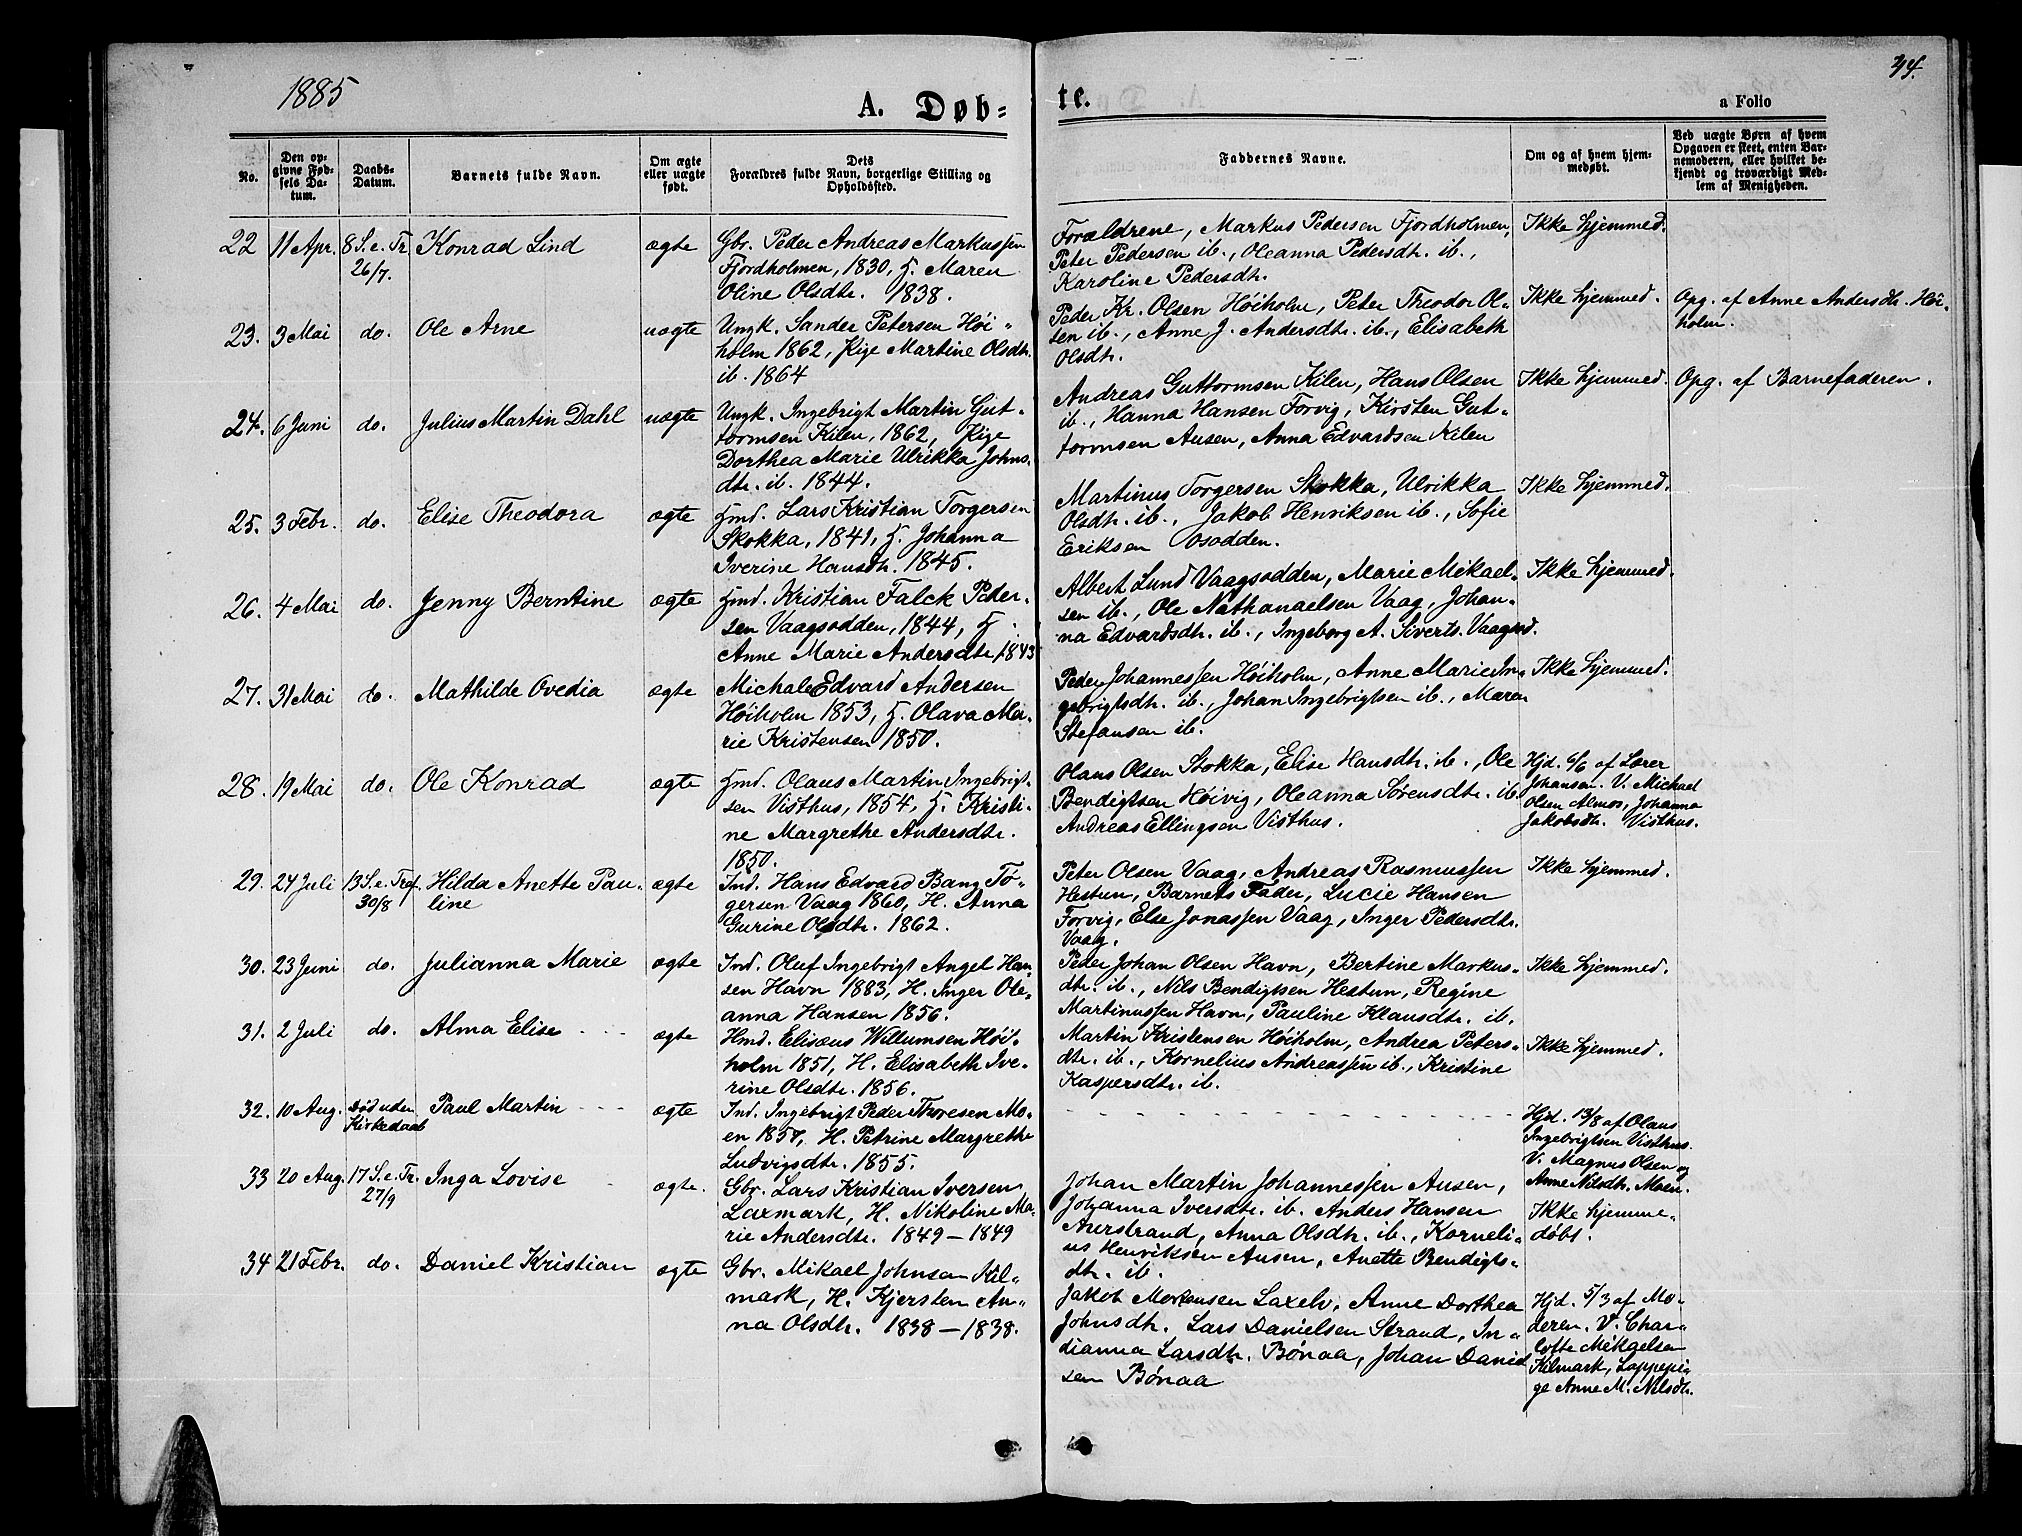 1885
A. Døb-
te.
44.
a Folio
No.
Den op-
givne Fød-
sels Da-
tum.
Daabs-
Datum.
Barnets fulde Navn.
Om ægte
eller uægte
født.
Dets
Forældres fulde Navn, borgerlige Stilling og
Opholdssted.
Faddernes Navne.
Om og af hvem hjem-
medøbt.
Ved uægte Børn af hvem
Opgaven er skeet, enten Bar-
nemoderen, eller hvilket be-
kjendt og troværdigt Med-
lem af Menigheden.
22 11 Apr. 8 S. e. Tr. Konrad Lind ægte
26/7.
Gbr. Peder Andreas Markussen
Fjordholmen, 1830, H. Maren
Oline Olsdtr. 1838.
Forældrene, Markus Pedersen Fjordholmen,
Peter Pedersen ib., Oleanna Pedersdtr. ib.,
Karoline Pedersdtr.
Ikke hjemmed.
23. 3 Mai do. Ole Arne uægte
Ungk. Sander Petersen Høi-
holm 1862, Pige Martine Olsdtr.
ib. 1864
Peder Kr. Olsen Høiholm, Peter Theodor Ol-
sen ib., Anne J. Andersdtr. ib., Elisabeth
Olsdtr.
Ikke hjemmed.
Opg. af Anne Andersdtr. Høi-
holm.
24. 6 Juni do. Julius Martin Dahl uægte
Ungk. Ingebrigt Martin Gut-
tormsen Kilen, 1862, Pige
Dorthea Marie Ulrikka Johns-
dtr. ib. 1844.
Andreas Guttormsen Kilen, Hans Olsen
ib., Hanna Hansen Forvig, Kirsten Gut-
tormsen Ausen, Anna Edvardsen Kilen
Ikke hjemmed.
Opg. af Barnefaderen.
25. 3 Febr. do. Elise Theodora ægte
Hmd. Lars Kristian Torgersen
Skokka, 1841, H. Johanna
Iverine Hansdtr. 1845.
Martinus Torgersen Skokka, Ulrikka
Olsdtr. ib., Jakob Henriksen ib., Sofie
Eriksen Osodden.
Ikke hjemmed.
26. 4 Mai do. Jenny Berntine ægte
Hmd. Kristian Falck Peder-
sen Vaagsodden, 1844, H.
Anne Marie Andersdtr. 1843
Albert Lund Vaagsodden, Marie Mikael-
sen ib., Ole Nathanaelsen Vaag, Johan-
na Edvardsdtr. ib., Ingeborg A. Siverts. Vaagsod.
Ikke hjemmed.
27. 31 Mai do. Mathilde Ovedia ægte
Michale Edvard Andersen
Høiholm 1853, H. Olava Ma-
rie Kristensen 1850.
Peder Johannessen Høiholm, Anne Marie In-
gebrigtsdtr. ib., Johan Ingebrigtsen ib., Maren
Stefansen ib.
Ikke hjemmed.
28. 19 Mai do. Ole Konrad ægte
Hmd. Olaus Martin Ingebrigt-
sen Visthus, 1854, H. Kristi-
ne Margrethe Andersdtr.
1850.
Olaus Olsen Stokka, Elise Hansdtr. ib., Ole
Bendigtsen Høivig, Oleanna Sørensdtr. ib.
Andreas Ellingsen Visthus.
Hjd. 6/6 af Lærer
Johansen. V. Michael
Olsen Almos, Johanna
Jakobsdtr. Visthus.
29. 24 Juli 13 S. e. Tref. Hilda Anette Pau- ægte
30/8 line
Ind. Hans Edvard Bang To-
gersen Vaag 1860, H. Anna
Gurine Olsdtr. 1862.
Peter Olsen Vaag, Andreas Rasmussen
Hestun, Barnets Fader, Lucie Hansen
Forvig, Else Jonassen Vaag, Inger Pedersdtr.
Vaag.
Ikke hjemmed.
30. 23 Juni do. Julianna Marie ægte
Ind. Oluf Ingebrigt Angel Han-
sen Havn 1883, H. Inger Ole-
anna Hansen 1856.
Peder Johan Olsen Havn, Bertine Markus-
dtr. ib., Nils Bendigtsen Hestun, Regine
Martinussen Havn, Pauline Klausdtr. ib.
Ikke hjemmed.
31. 2 Juli do. Alma Elise ægte
Hmd. Elisæus Willumsen Høi-
holm 1851, H. Elisabeth Ive-
rine Olsdtr. 1856.
Martin Kristensen Høiholm, Andrea Peters-
dtr. ib., Kornelius Andreassen ib., Kristine
Kaspersdtr. ib.
Ikke hjemmed.
32. 10 Aug. Død uden Paul Martin ægte
Kirkedaab
Ind. Ingebrigt Peder Thoresen Mo-
en 1857, H. Petrine Margrethe
Ludvigsdtr. 1855.
Hjd. 13/8 af Olaus
Ingebrigtsen Visthus.
V. Magnus Olsen og
Anne Nilsdtr. Moen.
33 20 Aug. 17 S. e. Tr. Inga Lovise ægte.
27/9
Gbr. Lars Kristian Iversen
Laxmark, H. Nikoline Ma-
rie Andersdtr. 1849 - 1849
Johan Martin Johannessen Ausen,
Johanna Iversdtr. ib. Anders Hansen
Aurstrand, Anna Olsdtr. ib., Korneli-
us Henriksen Ausen, Anette Bendigts-
dtr. ib.
Ikke hjemme-
døbt.
34 21 Febr. do. Daniel Kristian ægte
Gbr. Mikael Johnsen Kil-
mark, H. Kjersten An-
na Olsdtr. 1838 - 1838.
Jakob Mortensen Laxelv, Anne Dorthea
Johnsdtr. Lars Danielsen Strand, In-
dianna Larsdtr. Bønaa, Johan Daniel
sen Bønaa
Hjd. 5/3 af Mo-
deren. V. Char-
lotte Mikaelsen
Kilmark, Lappepi-
ge Anne M. Nilsdtr.